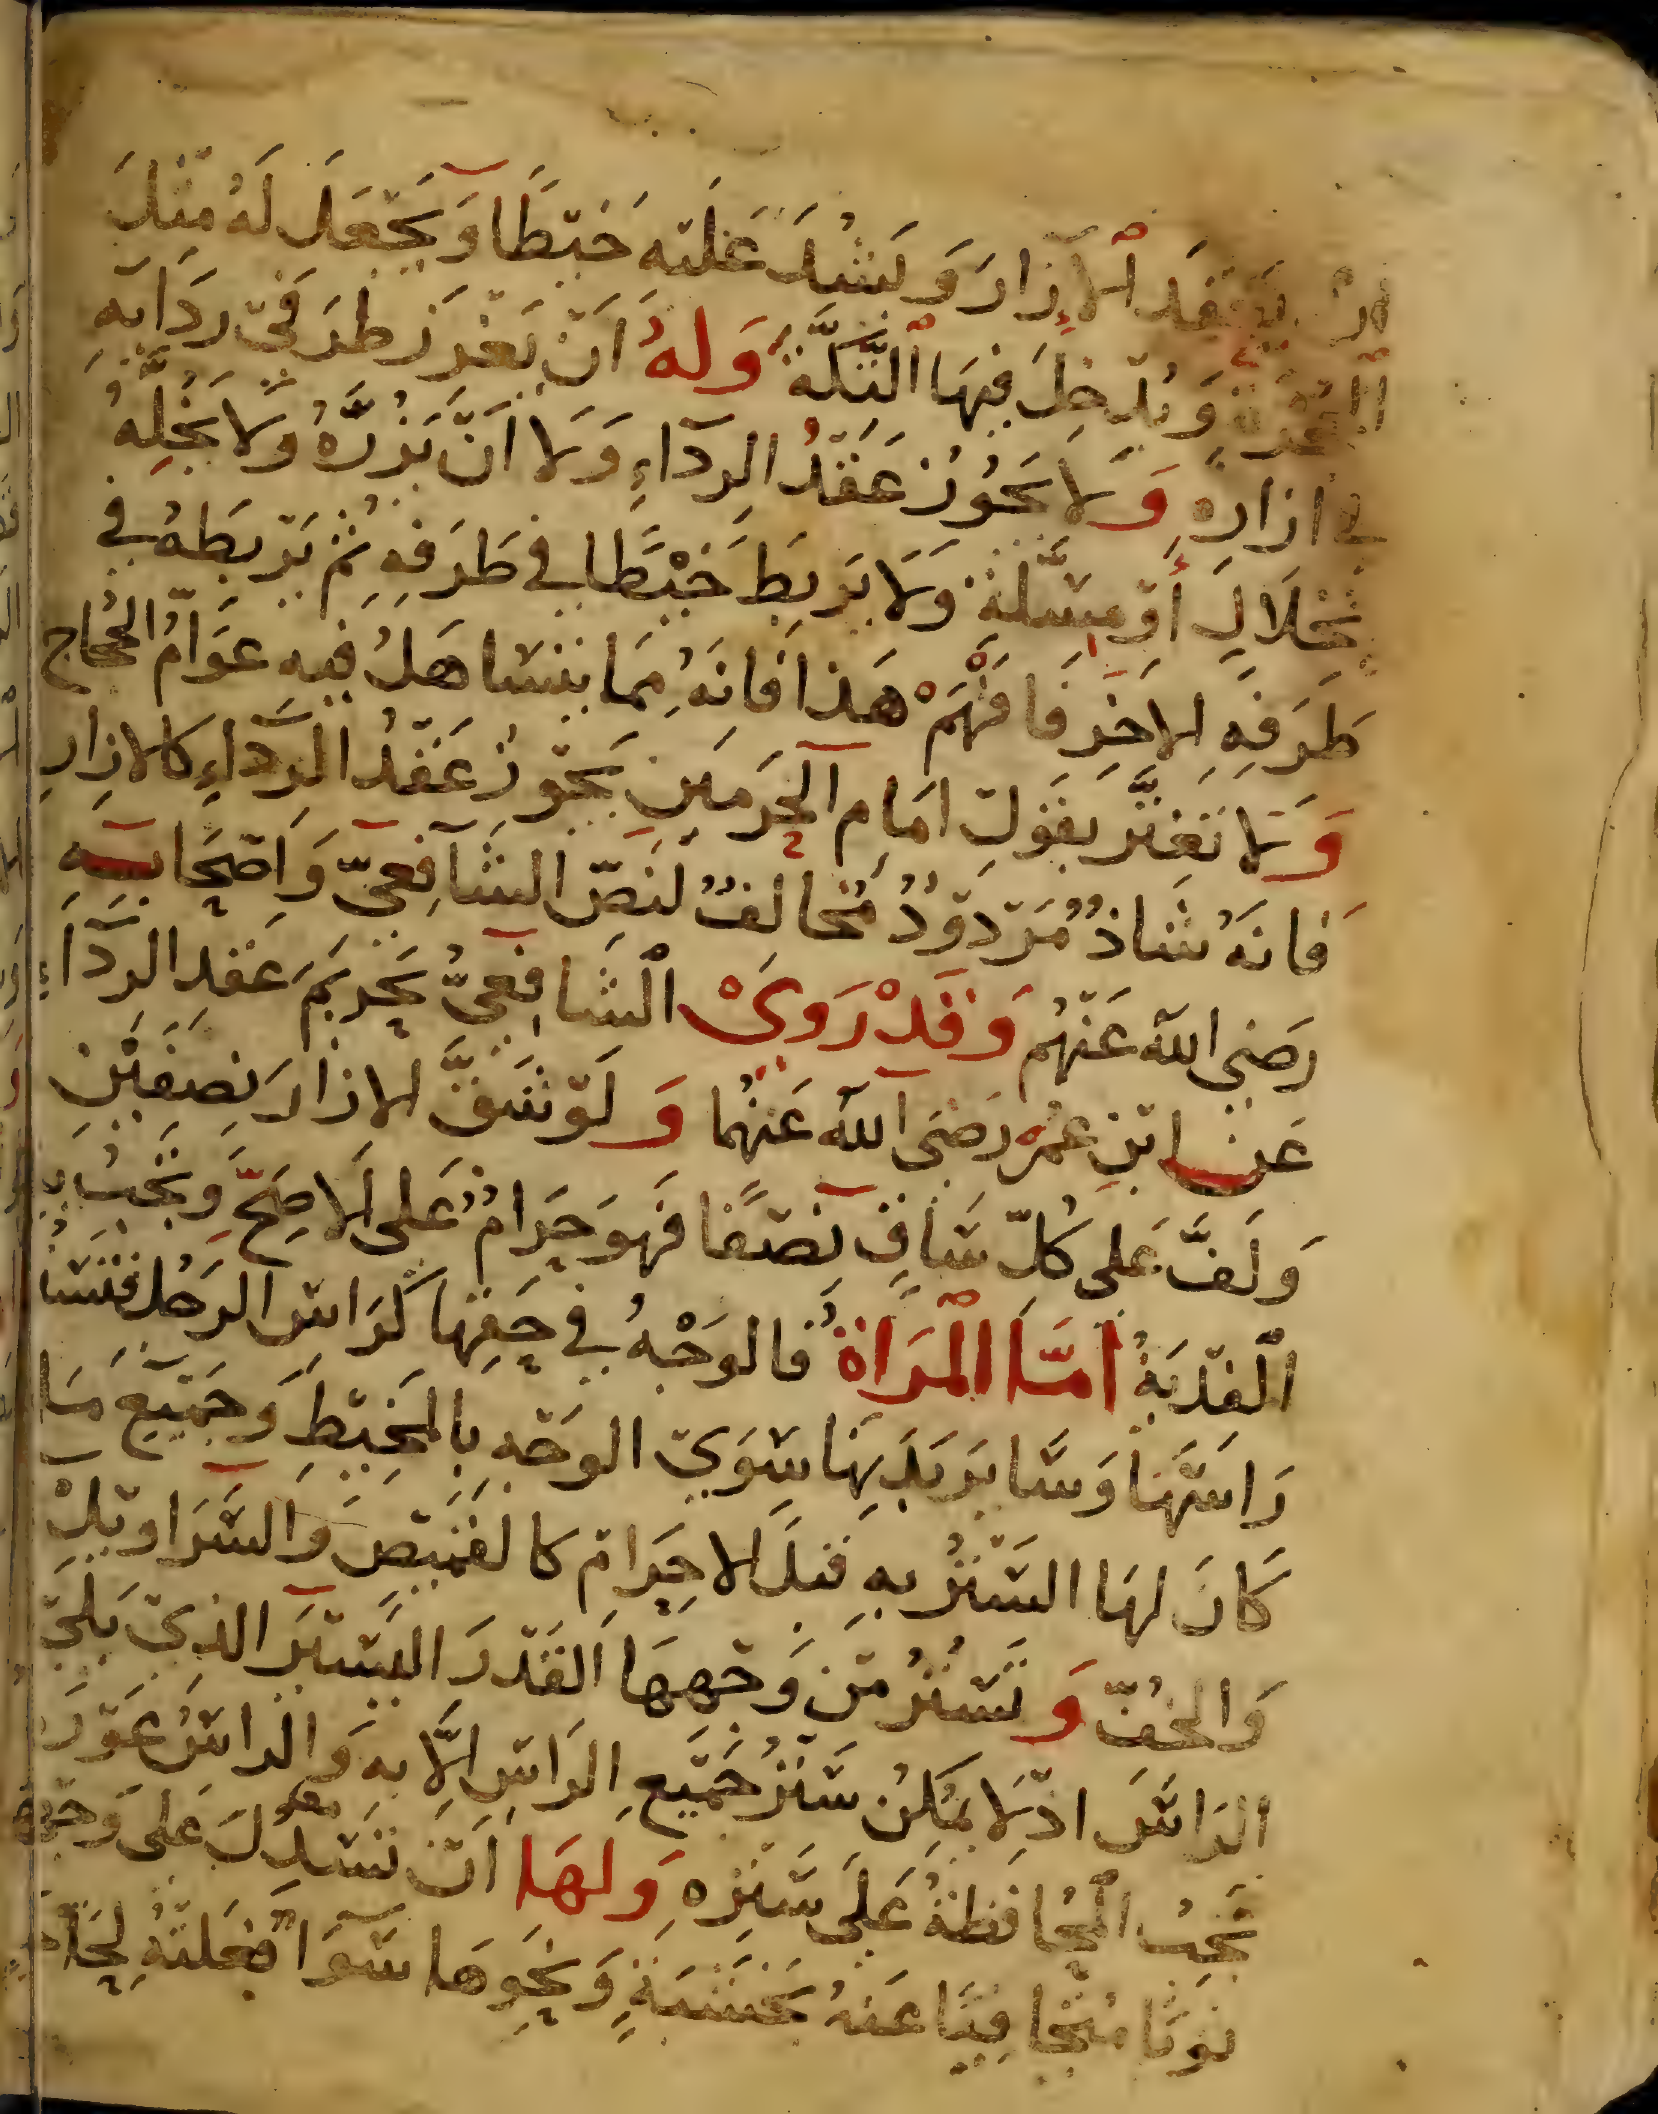 أن يعقد الإزار ويشد عليه خيطا ويجعل له مثل
الحجزة ويدخل فيها التكة وله أن يغرز طرفي ردائه
في إزاره ولا يجوز عقد الرداء ولا أن يزره ولا يخله
بخلال أو مسلة ولا يربط خيطا في طرفه ثم يربطه في
طرفه الاخر فافهم هذا فانه مما يتساهل فيه عوام الحجاج
ولا تغتر بقول امام الحرمين يجوز عقد الرداء كالازار
فانه شاذ مردود مخالف لنص الشافعي وأصحابه
رضي الله عنهم وقد روى الشافعي تحريم عقد الرداء
عن ابن عمر رضي الله عنهما ولو شق الازار نصفين
ولف على كل ساق نصفا فهو حرام على الاصح ويجب به
الفدية أما المرأة فالوجه في حقها كراس الرجل فتستر
راسها وسائر بدنها سوى الوجه بالمخيط وجميع ما
كان لها الستر به قبل الاحرام كالقميص والسراويل
والخف وتستر من وجهها القدر اليسير الذي يلي
الراس اذ لا يمكن ستر جميع الراس الا به والراس عورة
تجب المحافظة على ستره ولها أن تسدل على وجهها
ثوبا متجافيا عنه بخشبة ونحوها سواء فعلته لحاجة